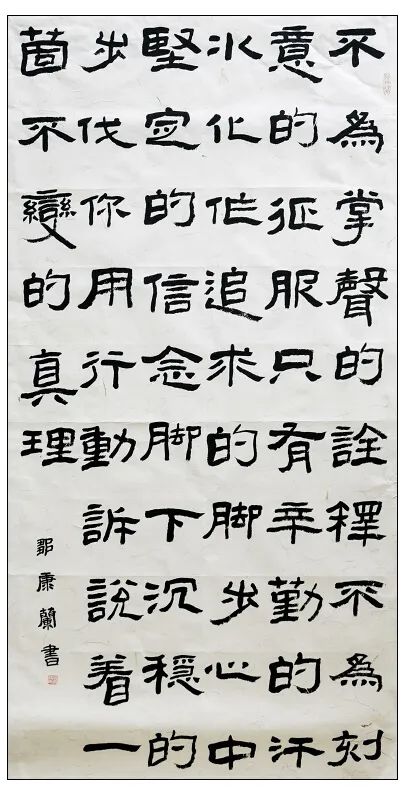 不為掌聲的詮釋不為刻
意的征服只有辛勤的汗
水化作追求的脚步心中
堅定的信念脚下沉穩的
步伐你用行動訴說着一
箇不變的真理
康蘭書